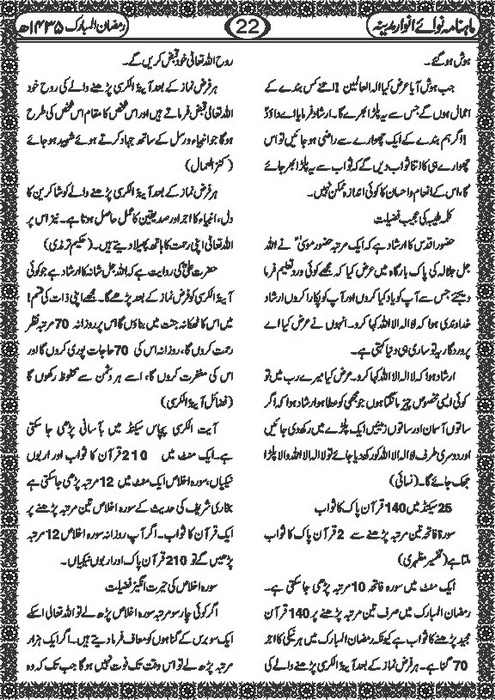 ماہنامہ نوائے انوار مدینہ
22
رمضان المبارک ۱۴۳۵ھ
ہوش ہو گئے۔
جب ہوش آیا عرض کیا الہ العالمین! اتنے کس بندے کے
اعمال ہوں گے جس سے یہ پلڑا بھرے گا۔ ارشاد فرمایا اے داؤدؑ
! اگر ہم بندے کے ایک چھوارے سے راضی ہو جائیں تو اس
چھوارے ہی کا اتنا ثواب دیں گے کہ ثواب سے یہ پلڑا بھر جائے
گا، اس کے انعام و احسان کا کوئی اندازہ ممکن نہیں۔
کلمہ طیبہ کی عجیب فضیلت
حضور اقدس کا ارشاد ہے کہ ایک مرتبہ حضور موسیٰؑ نے اللہ
جل جلالہ کی پاک بارگاہ میں عرض کیا کہ مجھے کوئی ورد تعلیم فرما
دیجئے جس سے آپ کو یاد کیا کروں اور آپ کو پکارا کروں ارشاد
خداوندی ہوا کہ لا الہ الا اللہ کہا کرو۔ انہوں نے عرض کیا اے
پروردگار یہ تو ساری ہی دنیا کہتی ہے۔
ارشاد ہوا کہ لا الہ الا اللہ کہا کرو۔ عرض کیا میرے رب میں تو
کوئی ایسی مخصوص چیز مانگتا ہوں جو مجھی کو عطا ہو ارشاد ہوا کہ اگر
ساتوں آسمان اور ساتوں زمینیں ایک پلڑے میں رکھ دی جائیں
اور دوسری طرف لا الہ الا اللہ کو رکھ دیا جائے تو لا الہ الا اللہ والا پلڑا
جھک جائے گا۔ (نسائی)
25 سیکنڈ میں 140 قرآن پاک کا ثواب
سورۃ فاتحہ تین مرتبہ پڑھنے سے 2 قرآن پاک کا ثواب
ملتا ہے (تفسیر مظہری)
ایک منٹ میں سورہ فاتحہ 10 مرتبہ پڑھی جا سکتی ہے۔
رمضان المبارک میں صرف تین مرتبہ پڑھنے پر 140 قرآن
مجید پڑھنے کا ثواب ہے کیونکہ رمضان المبارک میں ہر نیکی کا اجر
70 گنا ہے۔ ہر فرض نماز کے بعد آیۃ الکرسی پڑھنے والے کی
روح اللہ تعالیٰ خود قبض کریں گے۔
ہر فرض نماز کے بعد آیۃ الکرسی پڑھنے والے کی روح خود
اللہ تعالیٰ قبض فرماتے ہیں اور اس شخص کا مقام اس شخص کی طرح
ہوگا جو انبیاء و رسل کے ساتھ جہاد کرتے ہوئے شہید ہو جائے
(کنز العمال)
ہر فرض نماز کے بعد آیۃ الکرسی پڑھنے والے کو شاکرین کا
دل، انبیاء کا اجر اور صدیقین کا عمل حاصل ہوتا ہے۔ نیز اس پر
اللہ تعالیٰ اپنی رحمت کا ہاتھ پھیلا دیتے ہیں۔ (حکیم ترمذی)
حضرت علیؓ کی روایت ہے کہ اللہ جل شانہ کا ارشاد ہے جو کوئی
آیۃ الکرسی کو فرض نماز کے بعد پڑھے گا۔ مجھے اپنی ذات کی قسم!
میں اس کا ٹھکانہ جنت میں بناؤں گا اس پر روزانہ 70 مرتبہ نظر
رحمت کروں گا، روزانہ اس کی 70 حاجات پوری کروں گا اور
اس کی مغفرت کروں گا، اسے ہر دشمن سے محفوظ رکھوں گا
(فضائل آیۃ الکرسی)
آیت الکرسی پچاس سیکنڈ میں بآسانی پڑھی جا سکتی
ہے۔ ایک منٹ میں 210 قرآن کا ثواب اور اربوں
نیکیاں، سورہ اخلاص ایک منٹ میں 12 مرتبہ پڑھی جا سکتی ہے
بخاری شریف کی حدیث کے سورہ اخلاص تین مرتبہ پڑھنے پر
ایک قرآن کا ثواب۔ اگر آپ روزانہ سورہ اخلاص 12 مرتبہ
پڑھیں گے تو 210 قرآن پاک اور اربوں نیکیاں۔
سورہ اخلاص کی حیرت انگیز فضیلت
اگر کوئی چار سو مرتبہ سورہ اخلاص پڑھ لے تو اللہ تعالیٰ اسکے
ایک سو برس کے گناہوں کو معاف فرما دیتے ہیں۔ اگر ایک ہزار
مرتبہ پڑھ لے تو اس وقت تک فوت نہیں ہوگا جب تک کہ وہ